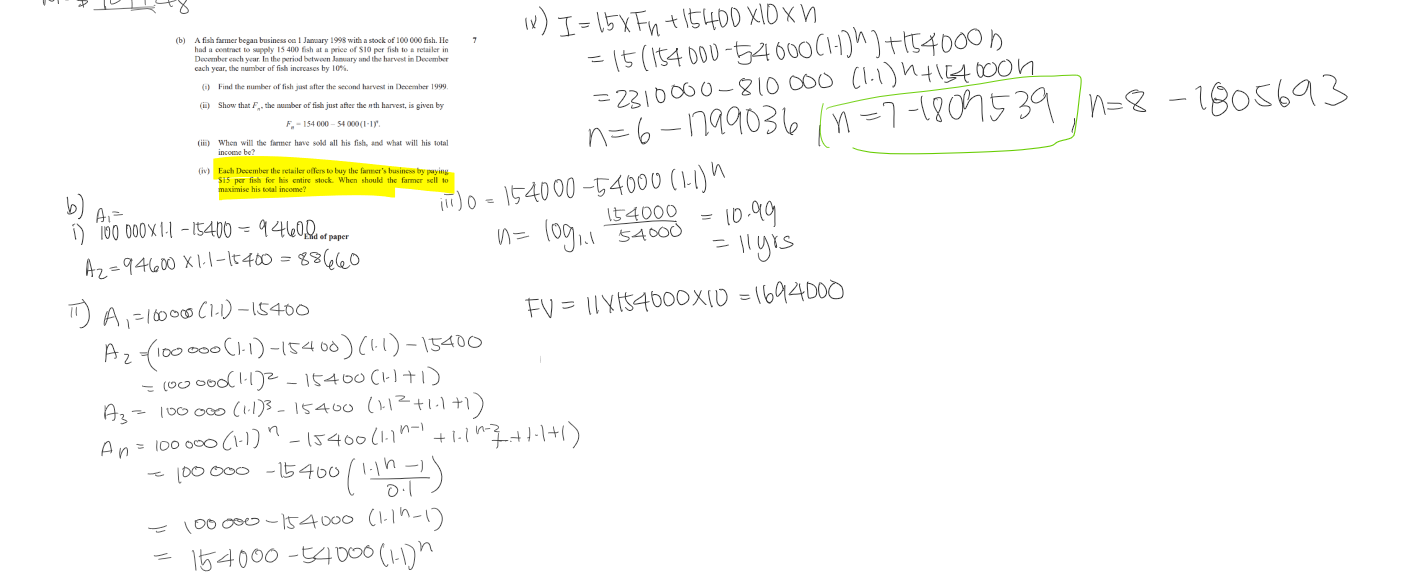 (b) A fish farmer began business on 1 January 1998 with a stock of 100 000 fish. He 7
had a contract to supply 15 400 fish at a price of $10 per fish to a retailer in
December each year. In the period between January and the harvest in December
each year, the number of fish increases by 10%.
(i) Find the number of fish just after the second harvest in December 1999.
(ii) Show that Fₙ, the number of fish just after the nth harvest, is given by
Fₙ = 154 000 – 54 000(1·1)ⁿ.
(iii) When will the farmer have sold all his fish, and what will his total
income be?
(iv) Each December the retailer offers to buy the farmer's business by paying
$15 per fish for his entire stock. When should the farmer sell to
maximise his total income?
End of paper
b)
A₁=
i) 100 000×1.1 -15400 = 94600
A₂=94600 ×1.1-15400 = 88660
ii) A₁=100000(1.1) -15400
A₂=(100 000(1.1)-15400)(1.1)-15400
= 100 000(1.1)² - 15400(1.1+1)
A₃= 100 000 (1.1)³ - 15400 (1.1²+1.1+1)
An = 100 000(1.1)ⁿ - 15400(1.1ⁿ⁻¹ +1.1ⁿ⁻²+...+1.1+1)
= 100 000 -15400 (1.1ⁿ-1 / 0.1)
= 100 000-154000 (1.1ⁿ-1)
= 154000 -54000(1.1)ⁿ
iii) 0 = 154000 -54000 (1.1)ⁿ
n= log₁.₁ 154000/54000 = 10.99
= 11yrs
FV = 11×154000×10 =1694000
iv) I =15×Fn +15400×10×n
= 15(154000-54000(1.1)ⁿ)+154000n
=2310000-810 000 (1.1)ⁿ+154000n
n=6 - 1799036, n=7-1809539, n=8 -1805693